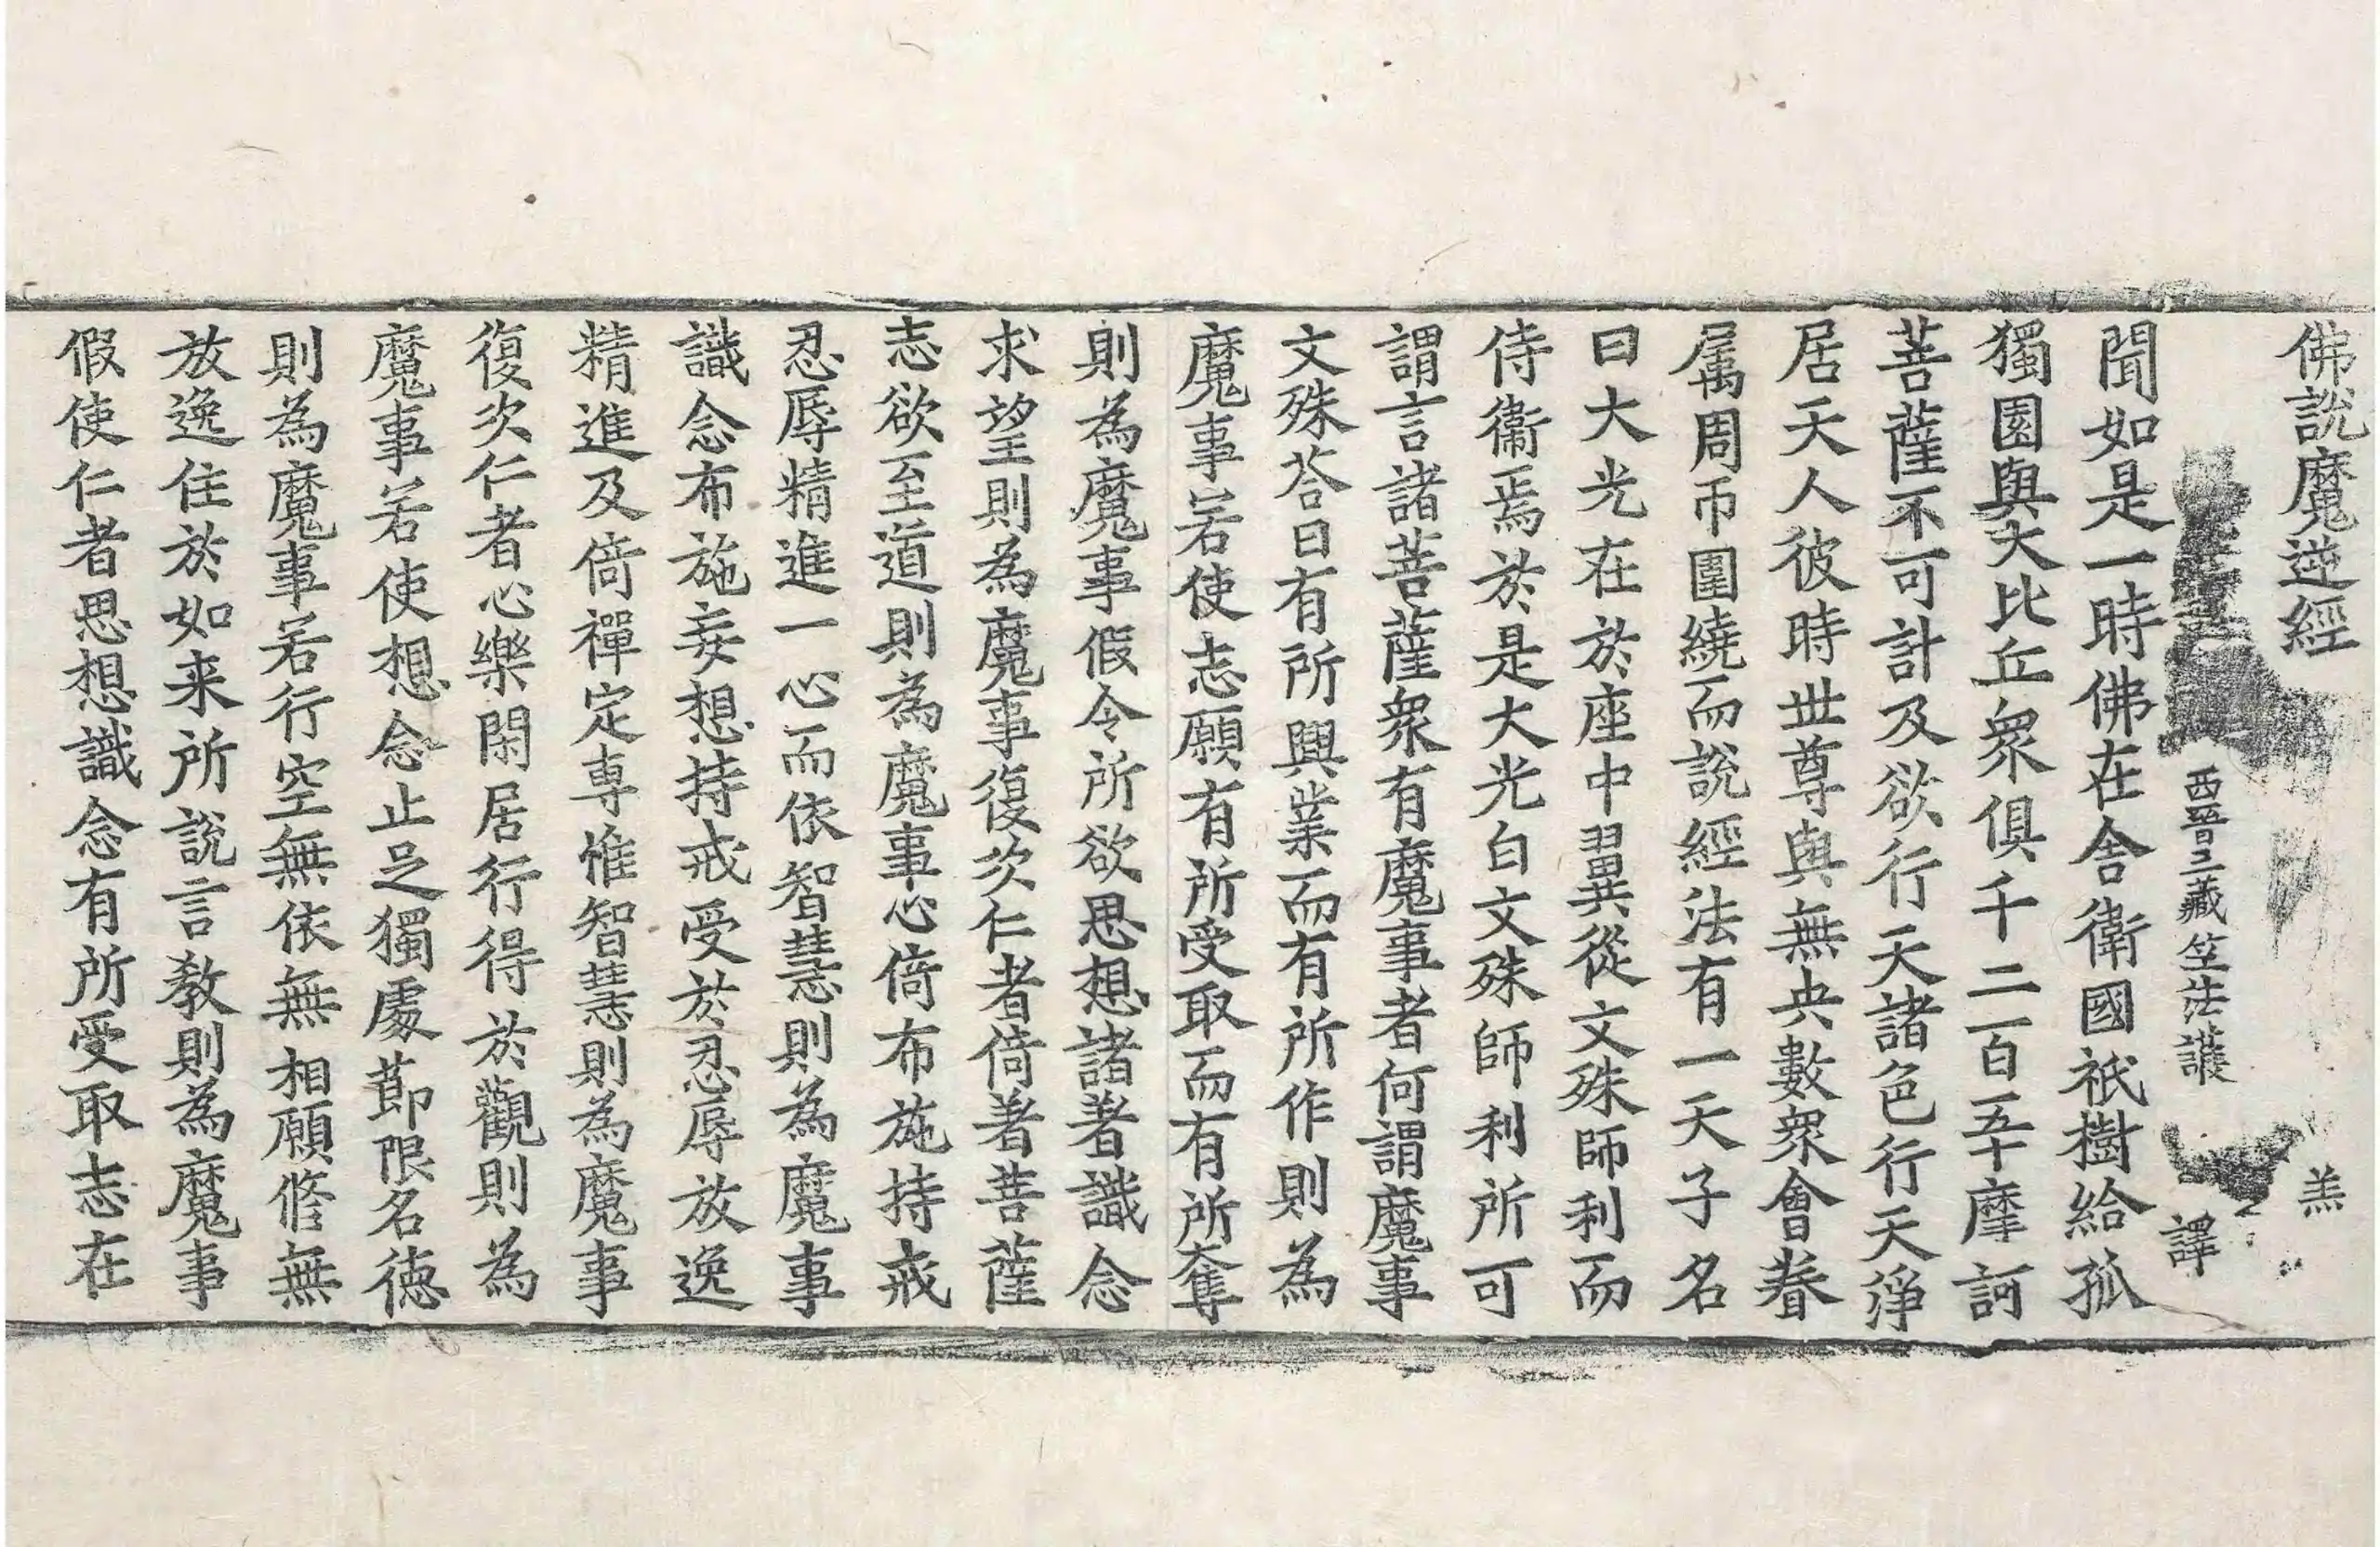 佛說魔逆經 羔
西晉三藏竺法護 譯
聞如是一時佛在舍衛國祇樹給孤
獨園與大比丘眾俱千二百五十摩訶
菩薩不可計及欲行天諸色行天淨
居天人彼時世尊與無央數眾會眷
属周帀圍繞而說經法有一天子名
曰大光在於座中翼從文殊師利而
侍衞焉於是大光白文殊師利所可
謂言諸菩薩衆有魔事者何謂魔事
文殊荅曰有所興業而有所作則為
魔事若使志願有所受取而有所奪
則為魔事假令所欲思想諸著識念
求望則為魔事復次仁者倚著菩薩
志欲至道則為魔事心倚布施持戒
忍辱精進一心而依智慧則為魔事
識念布施妄想持戒受於忍辱放逸
精進及倚禪定專惟智慧則為魔事
復次仁者心樂閑居行得於觀則為
魔事若使想念止足獨處節限名德
則為魔事若行空無依無相願修無
放逸住於如来所說言教則為魔事
假使仁者思想識念有所受取志在